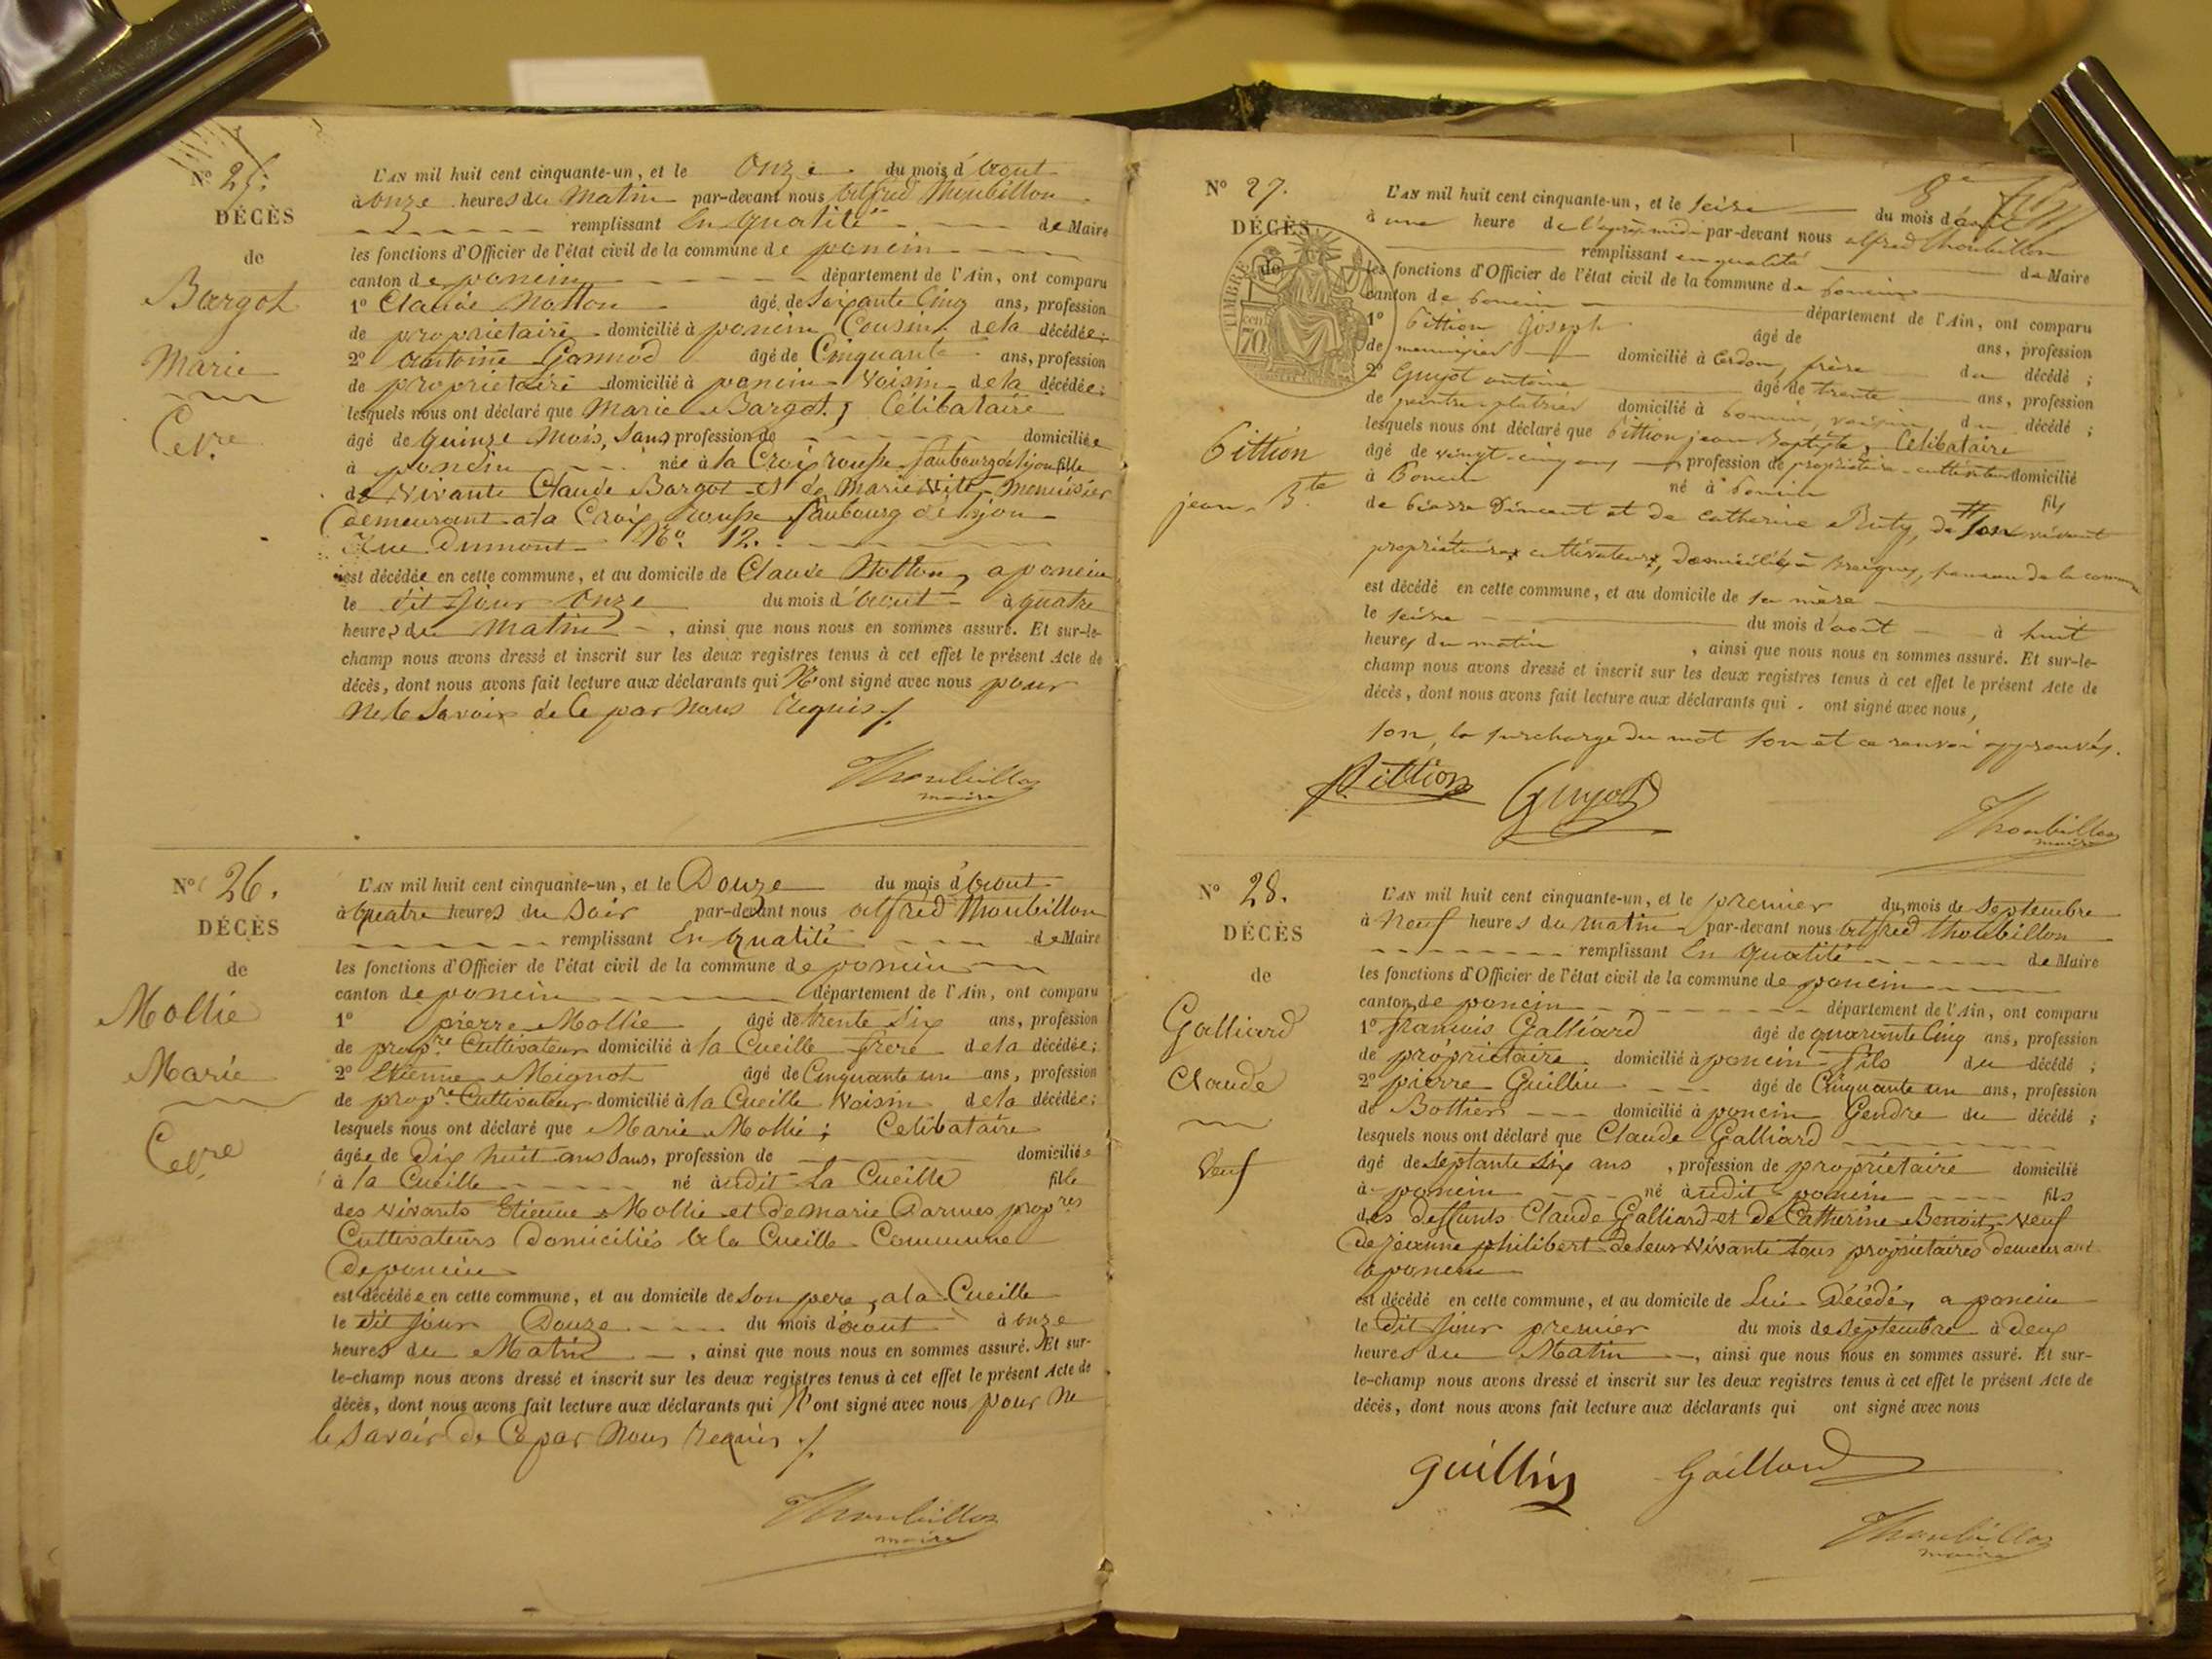 N° 25.
DÉCÈS
de
Bargot
Marie
Cre
L'AN mil huit cent cinquante-un, et le Onze du mois d'Aout
à onze heures du Matin par-devant nous Alfred Thoubillon
remplissant En qualité de Maire
les fonctions d'Officier de l'état civil de la commune de poncin
canton de poncin département de l'Ain, ont comparu
1° Claude Notton âgé de Soixante Cinq ans, profession
de propriétaire domicilié à poncin Cousin de la décédée;
2° Antoine Gamnod âgé de Cinquante ans, profession
de propriétaire domicilié à poncin Voisin de la décédée;
lesquels nous ont déclaré que Marie Bargot, Célibataire
âgé de quinze Mois, Sans profession de domiciliée
à poncin née à la Croix rousse faubourg de lyon fille
de Vivants Claude Bargot et de Marie Vite Menuisier
demeurant a la Croix rousse faubourg de lyon
Rue Dumont N° 12.
est décédée en cette commune, et au domicile de Claude Notton, a poncin
le dit Jour Onze du mois d'Aout à quatre
heures du Matin, ainsi que nous nous en sommes assuré. Et sur-le-
champ nous avons dressé et inscrit sur les deux registres tenus à cet effet le présent Acte de
décès, dont nous avons fait lecture aux déclarants qui N'ont signé avec nous pour
ne le Savoir de Ce par Nous Requis ./.
Thoubillon
maire
N° 26.
DÉCÈS
de
Mollie
Marie
Cre
L'AN mil huit cent cinquante-un, et le Douze du mois d'Aout
à quatre heures du Soir par-devant nous Alfred Thoubillon
remplissant En qualité de Maire
les fonctions d'Officier de l'état civil de la commune de poncin
canton de poncin département de l'Ain, ont comparu
1° pierre Mollie âgé de trente Six ans, profession
de propre Cultivateur domicilié à la Cueille frere de la décédée;
2° Etienne Mignot âgé de Cinquante un ans, profession
de propre Cultivateur domicilié à la Cueille Voisin de la décédée;
lesquels nous ont déclaré que Marie Mollie; Celibataire
âgée de dix huit ans Sans, profession de domiciliée
à la Cueille né audit La Cueille fille
des Vivants Etienne Mollie et de Marie Darmes propres
Cultivateurs Domiciliés a la Cueille Commune
de poncin
est décédée en cette commune, et au domicile de Son pere, a la Cueille
le dit Jour Douze du mois d'aout à onze
heures du Matin, ainsi que nous nous en sommes assuré. Et sur-
le-champ nous avons dressé et inscrit sur les deux registres tenus à cet effet le présent Acte de
décès, dont nous avons fait lecture aux déclarants qui N'ont signé avec nous pour Ne
le Savoir de Ce par Nous Requis ./.
Thoubillon
maire
N° 27.
DÉCÈS
de
TIMBRE
cen 70
Pittion
jean Bte
L'AN mil huit cent cinquante-un, et le seize du mois d'aout
à une heure de l'après-midi par-devant nous alfred thoubillon
remplissant en qualité de Maire
les fonctions d'Officier de l'état civil de la commune de Poncin
canton de Poncin département de l'Ain, ont comparu
1° Pittion Joseph âgé de ans, profession
de menuisier domicilié à Cerdon, frère du décédé;
2° Guyot antoine âgé de trente ans, profession
de peintre-platrier domicilié à Poncin, voisin du décédé;
lesquels nous ont déclaré que Pittion jean Baptiste, Celibataire
âgé de vingt-cinq ans profession de propriétaire-cultivateur domicilié
à Poncin né à Poncin fils
de Pierre Vincent et de Catherine Ruty, de son vivant
propriétaires cultivateurs, domiciliés à Breignes, hameau de la commune
est décédé en cette commune, et au domicile de sa mère
le seize du mois d'août à huit
heures du matin, ainsi que nous nous en sommes assuré. Et sur-le-
champ nous avons dressé et inscrit sur les deux registres tenus à cet effet le présent Acte de
décès, dont nous avons fait lecture aux déclarants qui ont signé avec nous,
son, la surcharge du mot son et ce renvoi approuvés.
Pittion Guyot
Thoubillon
maire
N° 28.
DÉCÈS
de
Galliard
Claude
Veuf
L'AN mil huit cent cinquante-un, et le premier du mois de Septembre
à Neuf heures du matin par-devant nous Alfred thoubillon
remplissant En qualité de Maire
les fonctions d'Officier de l'état civil de la commune de poncin
canton de poncin département de l'Ain, ont comparu
1° francois Galliard âgé de quarante Cinq ans, profession
de propriétaire domicilié à poncin fils du décédé;
2° pierre Guillin âgé de Cinquante un ans, profession
de Bottier domicilié à poncin Gendre du décédé;
lesquels nous ont déclaré que Claude Galliard
âgé de Septante Six ans, profession de propriétaire domicilié
à poncin né audit poncin fils
des deffunts Claude Galliard et de Catherine Benoit, Veuf
de jeanne philibert de leur Vivants tous propriétaires demeurant
a poncin
est décédé en cette commune, et au domicile de Lui Décédé, a poncin
le dit Jour premier du mois de Septembre à deux
heures du Matin, ainsi que nous nous en sommes assuré. Et sur-
le-champ nous avons dressé et inscrit sur les deux registres tenus à cet effet le présent Acte de
décès, dont nous avons fait lecture aux déclarants qui ont signé avec nous
Guillin Gaillard
Thoubillon
maire